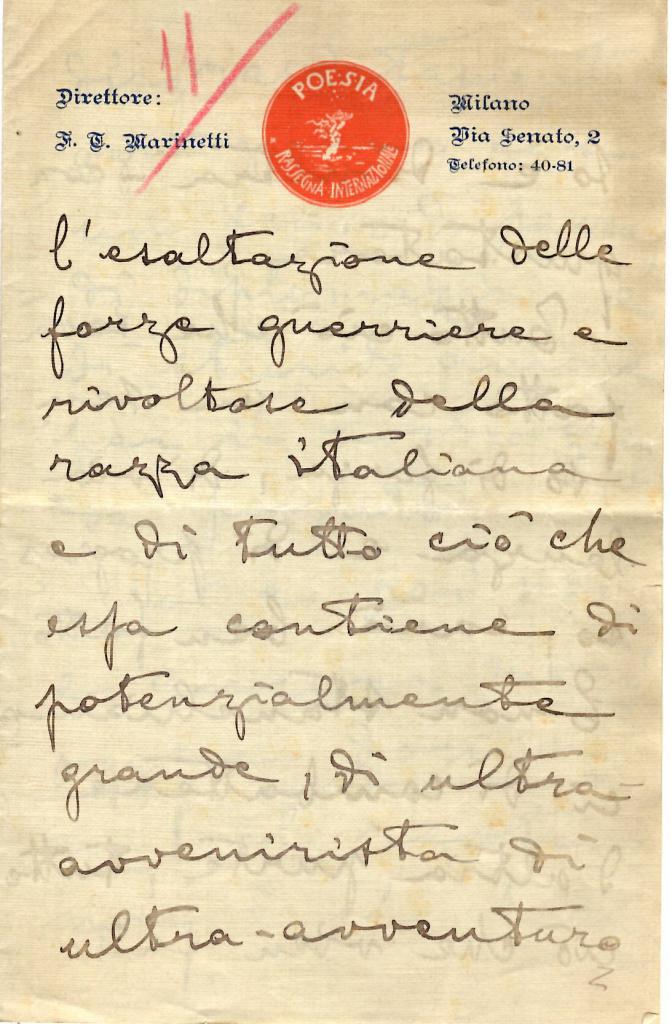 11
Direttore:
F. T. Marinetti
POESIA
RASSEGNA INTERNAZIONALE
Milano
Via Senato, 2
Telefono: 40-81
l'esaltazione delle
forze guerriere e
rivoltose della
razza italiana
e di tutto ciò che
essa contiene di
potenzialmente
grande, di ultra-
avvenirista di
ultra-avventuro